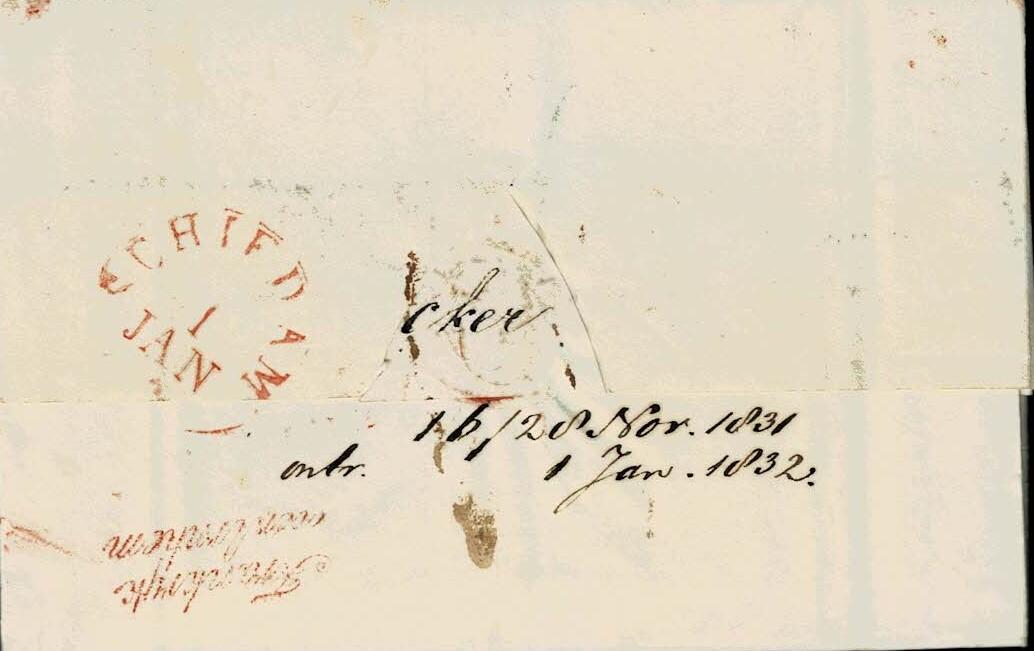 SCHIEDAM
1
JAN
cker
16/28 Nov. 1831
ontr. 1 Jan. 1832.
Frankryk